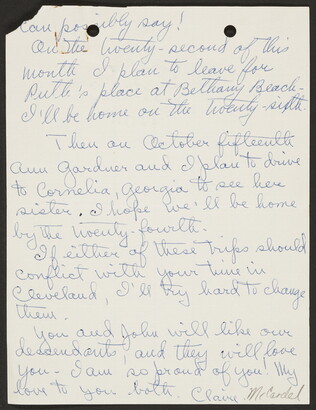 can possibly say!
On the twenty-second of this
month I plan to leave for
Ruth's place at Bethany Beach-
I'll be home on the twenty-sixth.
Then on October fifteenth
Ann Gardner and I plan to drive
to Cornelia, Georgia to see her
sister. I hope we'll be home
by the twenty-fourth.
If either of these trips should
conflict with your time in
Cleveland, I'll try hard to change
them.
You and John will like our
descendants, and they will love
you- I am so proud of you! My
love to you both. Claire McCardel